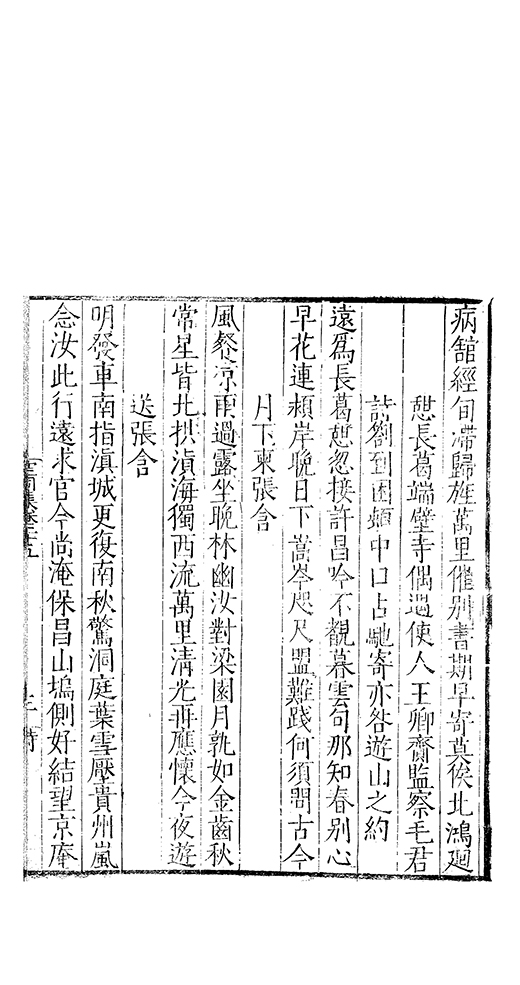 病館經旬滯歸旌萬里催別書期早寄莫俟北鴻廻
憇長葛端壁寺偶遇使人王卿齎監察毛君
詩劄到困頓中口占馳寄亦咎遊山之約
遠爲長葛憇忽接許昌吟不覩暮雲句那知春別心
早花連潁岸晩日下嵩岑咫尺盟難踐何須問古今
月下柬張含
風餐凉雨過露坐晩林幽汝對梁園月孰如金齒秋
常星皆北拱滇海獨西流萬里淸光再應懷今夜遊
送張含
明發車南指滇城更復南秋驚洞庭葉雪壓貴州嵐
念汝此行遠求官今尚淹保昌山塢側好結望京庵